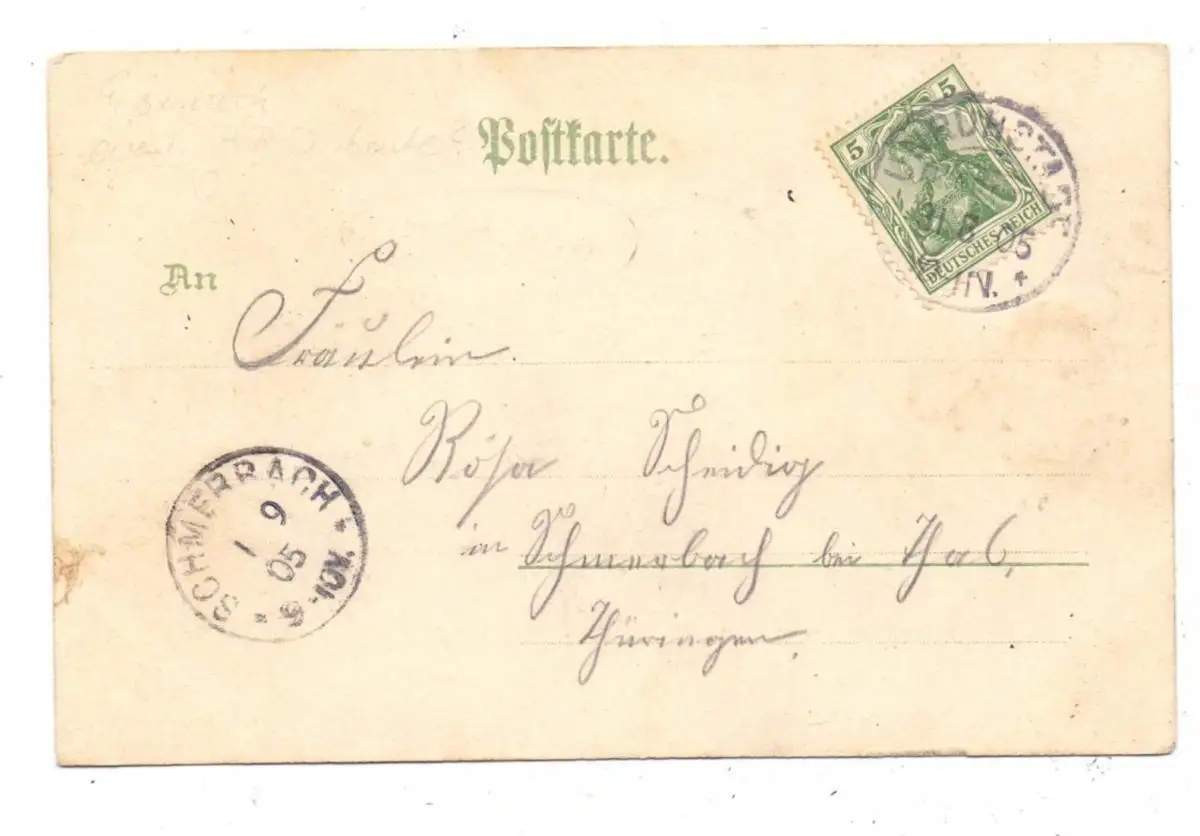 Postkarte.
5 5
DEUTSCHES REICH
31 8 05
An
Fräulein.
Rosa Scheidig
in Schmerbach bei Thal,
Thüringen.
* SCHMERBACH *
1 9
05
-10V.